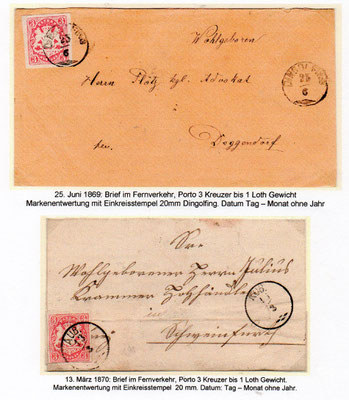 Wohlgeboren
Herrn Plötz kgl. Advokat
in
Deggendorf
25
6
25. Juni 1869: Brief im Fernverkehr, Porto 3 Kreuzer bis 1 Loth Gewicht
Markenentwertung mit Einkreisstempel 20mm Dingolfing. Datum Tag – Monat ohne Jahr
Wohlgeborener Herrn Julius
Krammer Holzhändler
in
Schweinfurt
13. März 1870: Brief im Fernverkehr, Porto 3 Kreuzer bis 1 Loth Gewicht.
Markenentwertung mit Einkreisstempel 20 mm. Datum: Tag – Monat ohne Jahr.